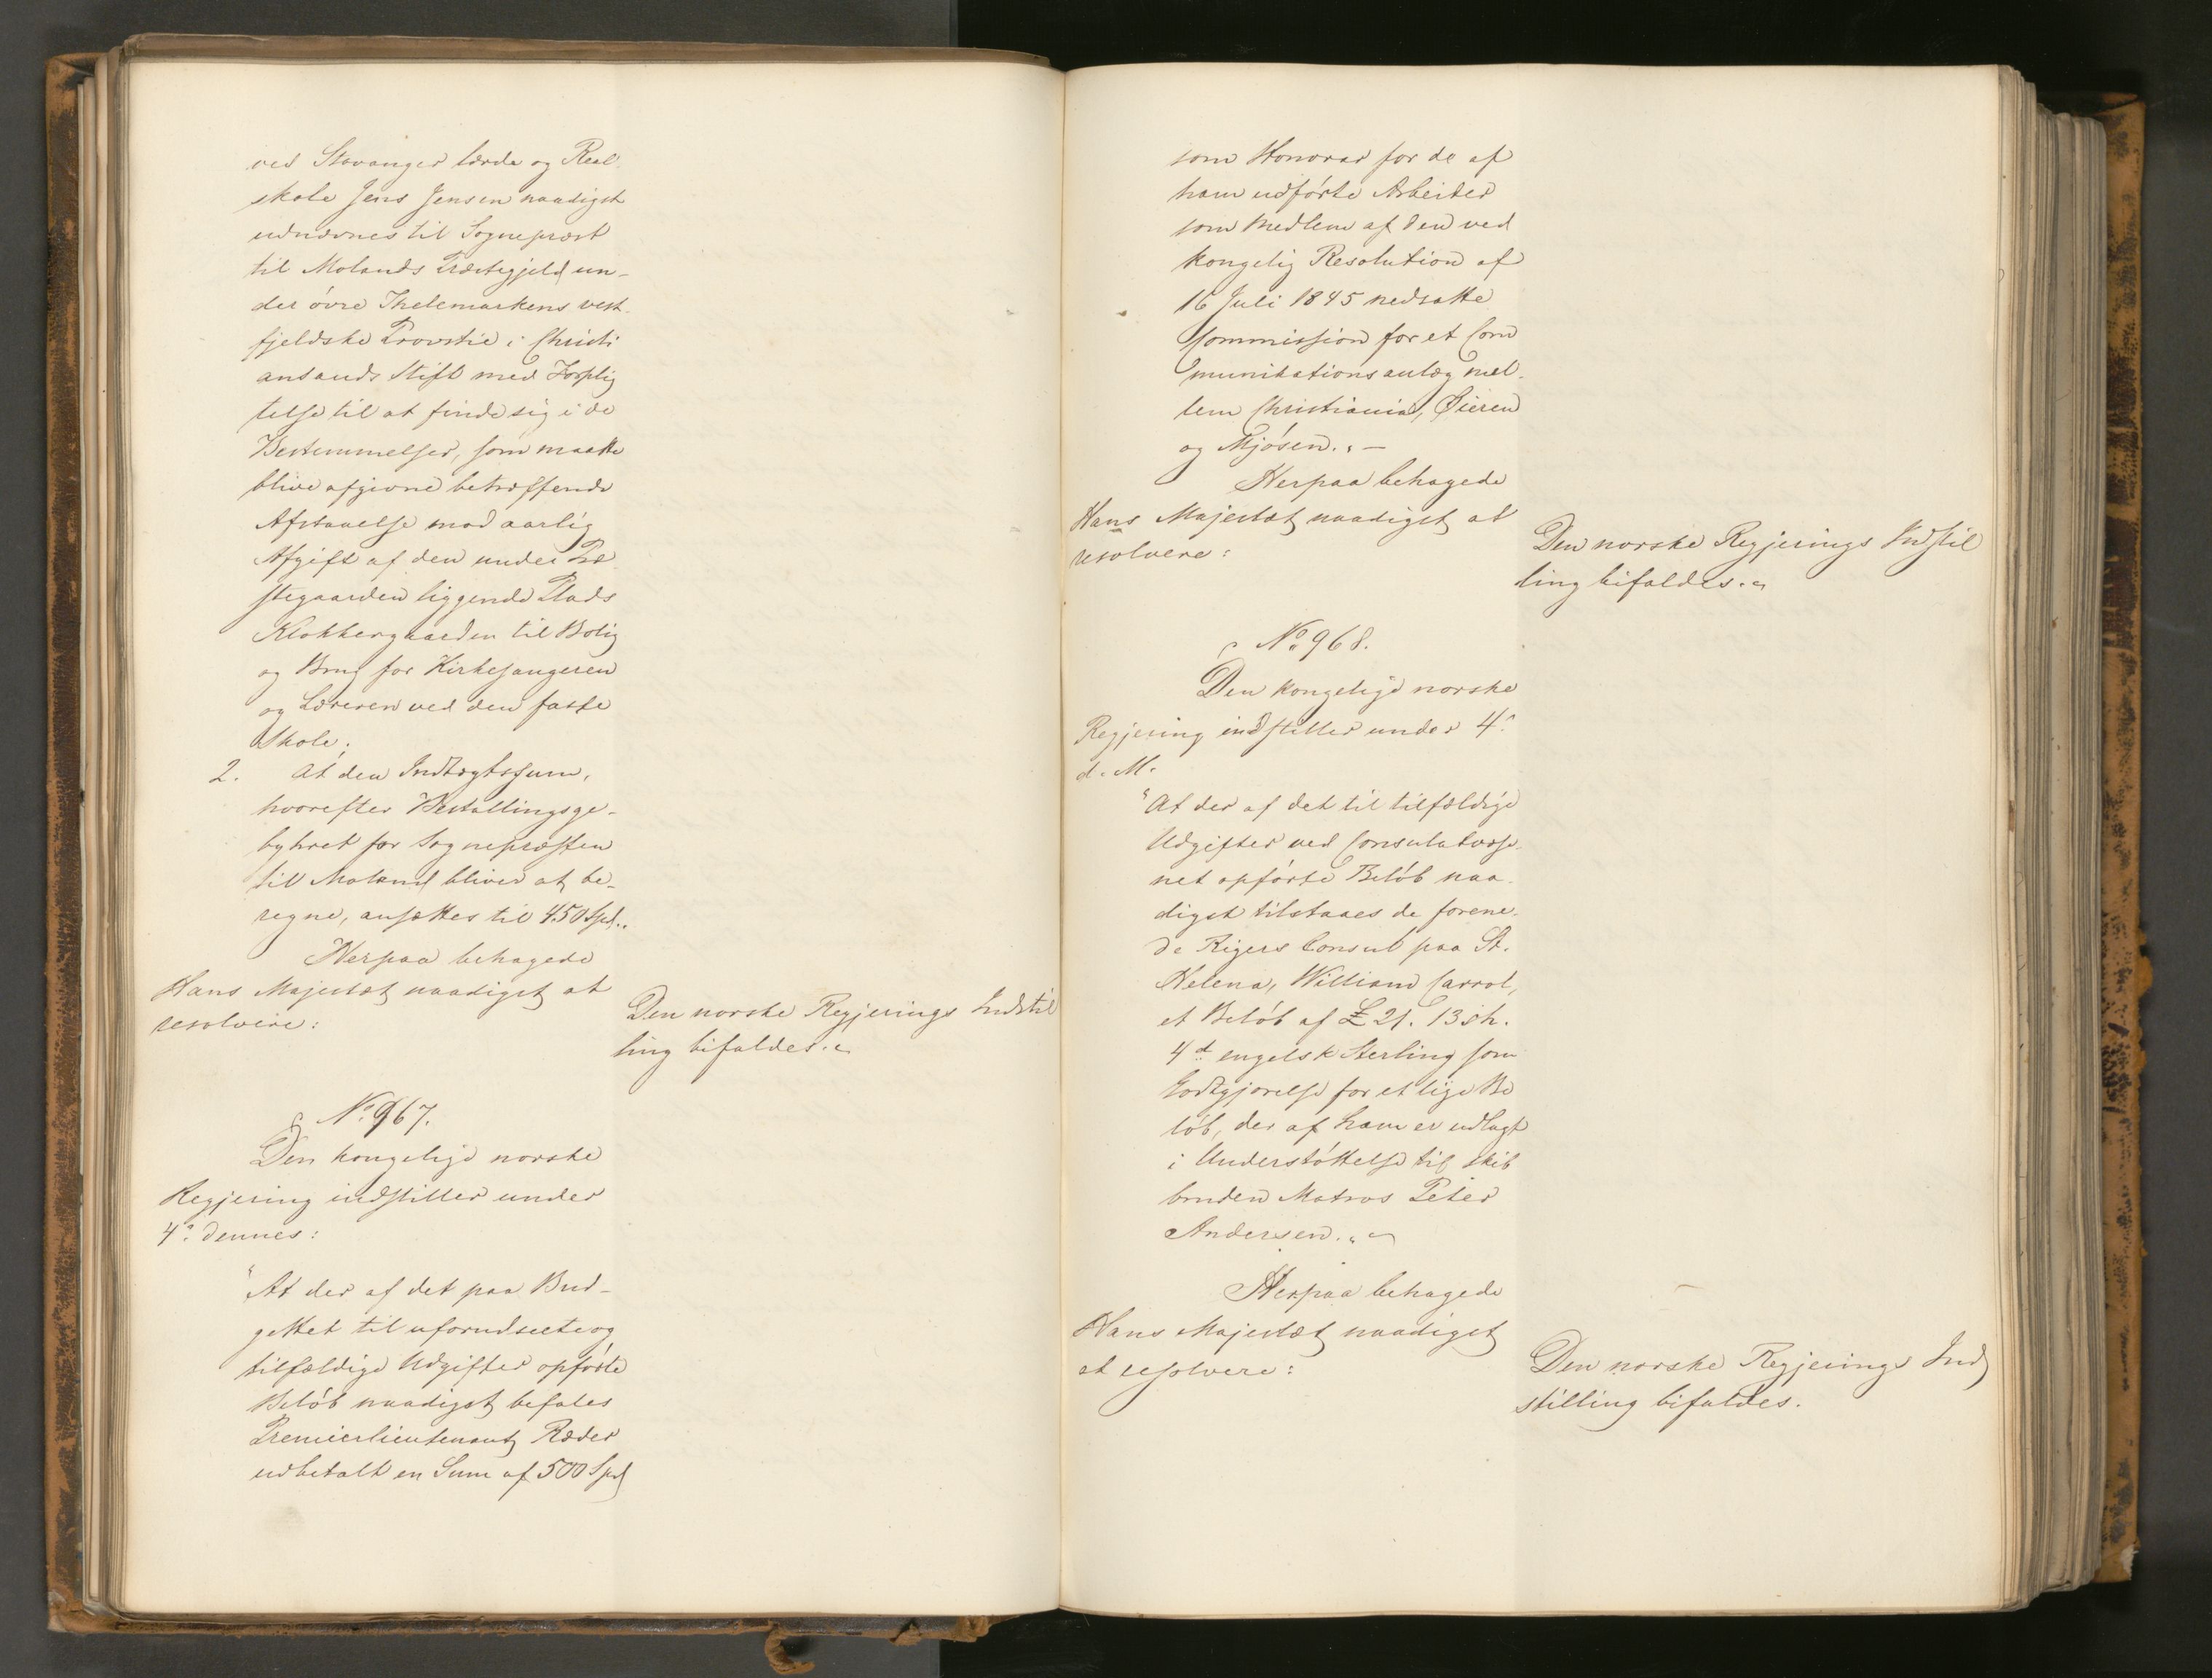 ved Stavanger lærde og Real
skole Jens Jensen naadigst
udnævnes til Sogneprest
til Molands Præstegjeld un-
der övre Thelemarkens vest-
fjeldske Provstie i Christi
ansands Stift med Forplig
telse til at finde sig i de
Bestemmelser, som maatte
blive afgivne betræffende
Afstaaelse mod aarlig
Afgift af den under Præ
stegaarden liggende Plads
Klokkergaarden til Bolig
og Brug for Kirkesangeren
og Læreren ved den faste
Skole;
2. At den Indtægtssum,
hvorefter Bestallingsge-
byhret for Sognepræsten
til Moland bliver at be-
regne, ansættes til 450 Spd..
Herpaa behagede
Hans Majestæt naadigst at
resolvere:
Den norske Regjerings Indstil
ling bifaldes.
No. 967.
Den kongelige norske
Regjering indstiller under
4de dennes:
"At der af det paa Bud-
gettet til uforudseete og
tilfældige Udgifter opförte
Belöb naadigst befales
Premierlieutenant Ræder
udbetalt en Sum af 500 Spd
som Honorar for de af
ham udförte Arbeider
som Medlem af den ved
kongelig Resolution af
16 Juli 1845 nedsatte
Commission for et Com
munikationsanlæg mel-
lem Christiania, Øieren
og Mjösen." —
Herpaa behagede
Hans Majestæt naadigst at
resolvere:
Den norske Regjerings Indstil
ling bifaldes.
No. 968.
Den kongelige norske
Regjering indstiller under 4de
d. M.
"At der af det til tilfældige
Udgifter ved Consulatvæse-
net opförte Belöb naa-
digst tilstaaes de forene-
de Rigers Consul paa St.
Helena, William Carrol,
et Belöb af £ 21. 13 sh.
4 d. engelsk Sterling som
Godtgjörelse for et lige Be
löb, der af ham er udlagt
i Understöttelse til skib
bruden Matros Peter
Andersen."
Herpaa behagede
Hans Majestæt naadigst
at resolvere:
Den norske Regjerings Ind
stilling bifaldes.